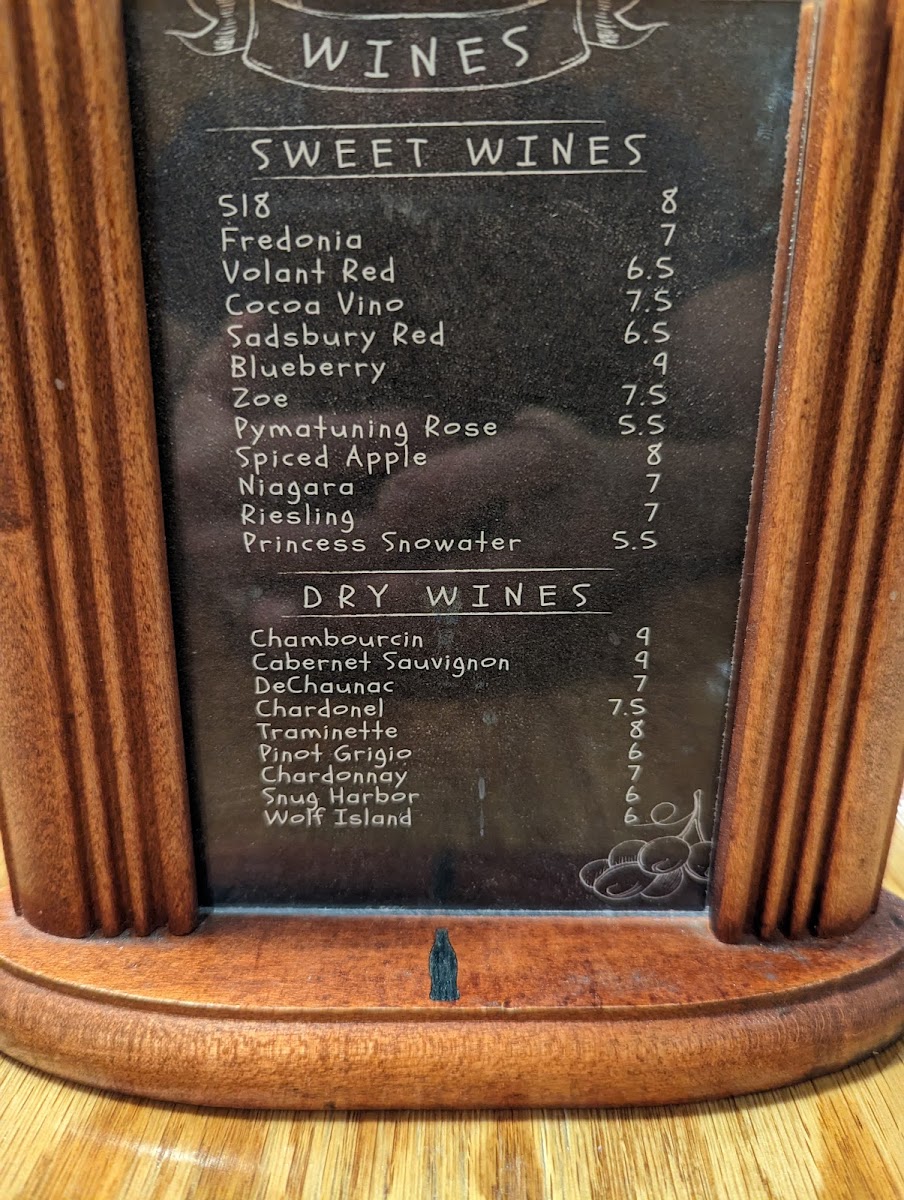 WINES
SWEET WINES
S18 8
Fredonia 7
Volant Red 6.5
Cocoa Vino 7.5
Sadsbury Red 6.5
Blueberry 9
Zoe 7.5
Pymatuning Rose 5.5
Spiced Apple 8
Niagara 7
Riesling 7
Princess Snowater 5.5
DRY WINES
Chambourcin 9
Cabernet Sauvignon 9
DeChaunac 7
Chardonel 7.5
Traminette 8
Pinot Grigio 6
Chardonnay 7
Snug Harbor 6
Wolf Island 6